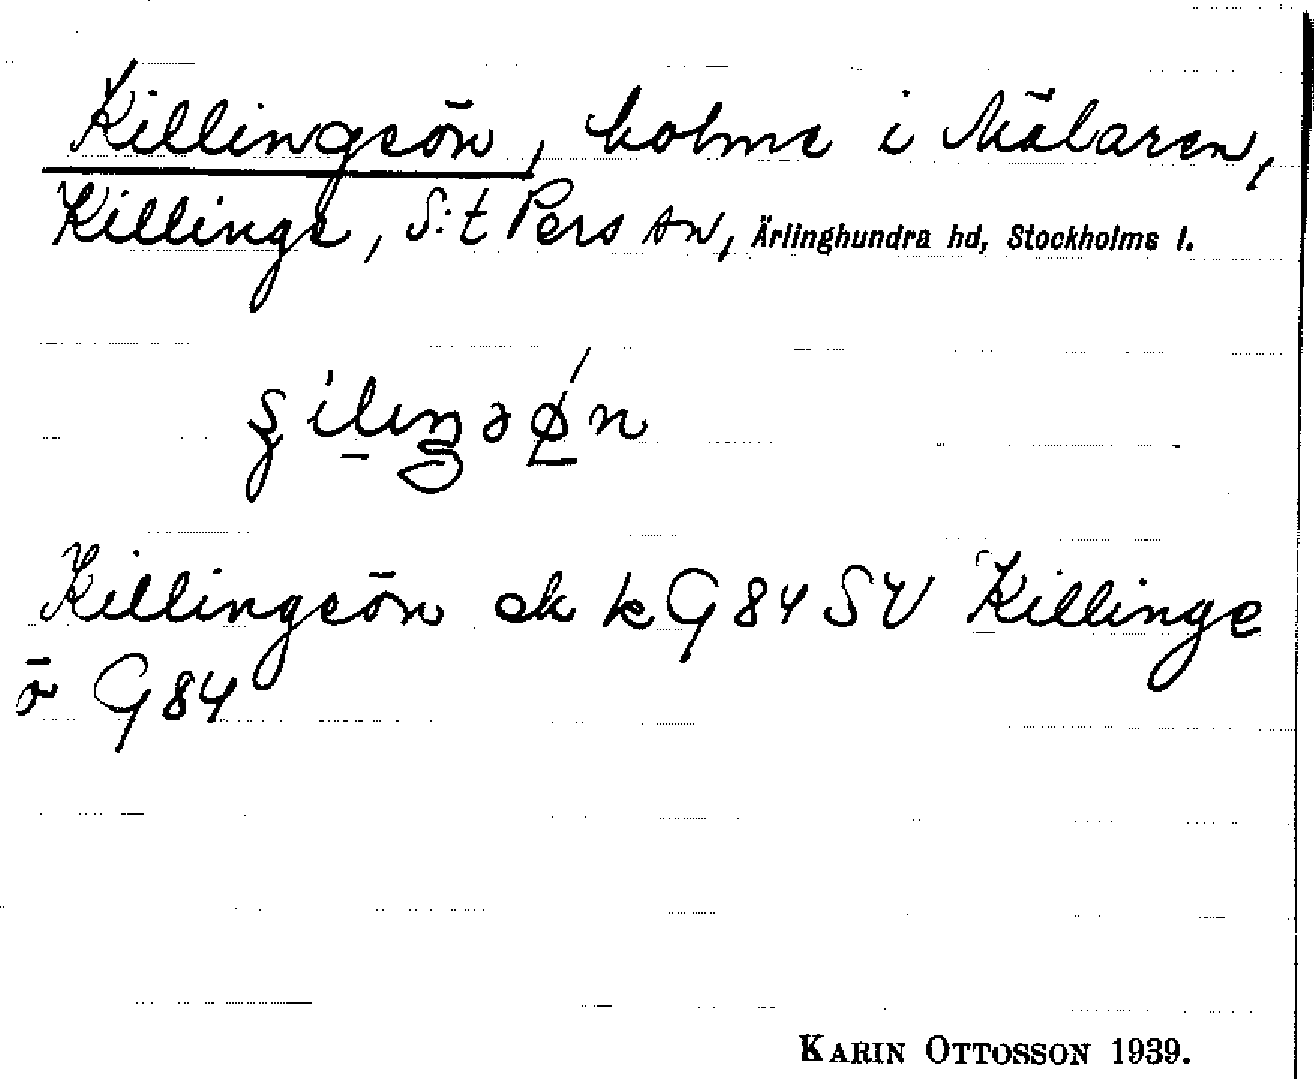 Killingeön, holme i Mälaren,
Killinge, S:t Pers sn, Ärlinghundra hd, Stockholms l.
Killingeön ek kG84 SV Killinge
ö G84
KARIN OTTOSSON 1939.